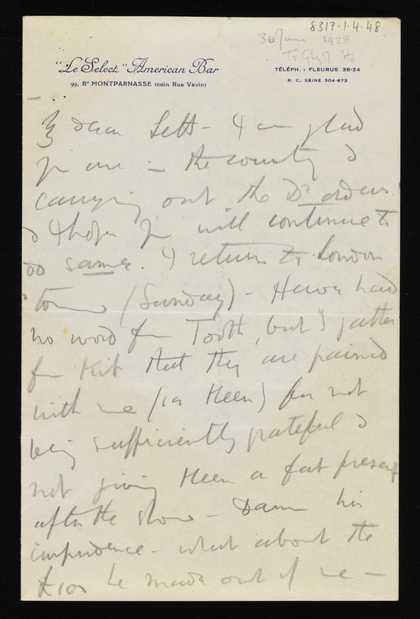 8317.1.4.48
30 June 1928
"Le Select" American Bar
99, Bd MONTPARNASSE (coin Rue Vavin)
TÉLÉPH. : FLEURUS 38-24
R. C. SEINE 304-673
My dear Lett - I am glad
you are in the country &
carrying out the Drs orders
& I hope you will continue to
do same. I return to London
(Sunday) - Have had
no word fm Tooth, but I gather
fm Kit that they are pained
with me (in Heen) for not
being sufficiently grateful &
not giving them a fat present
after the show - Damn his
impudence - what about the
he made out of me -